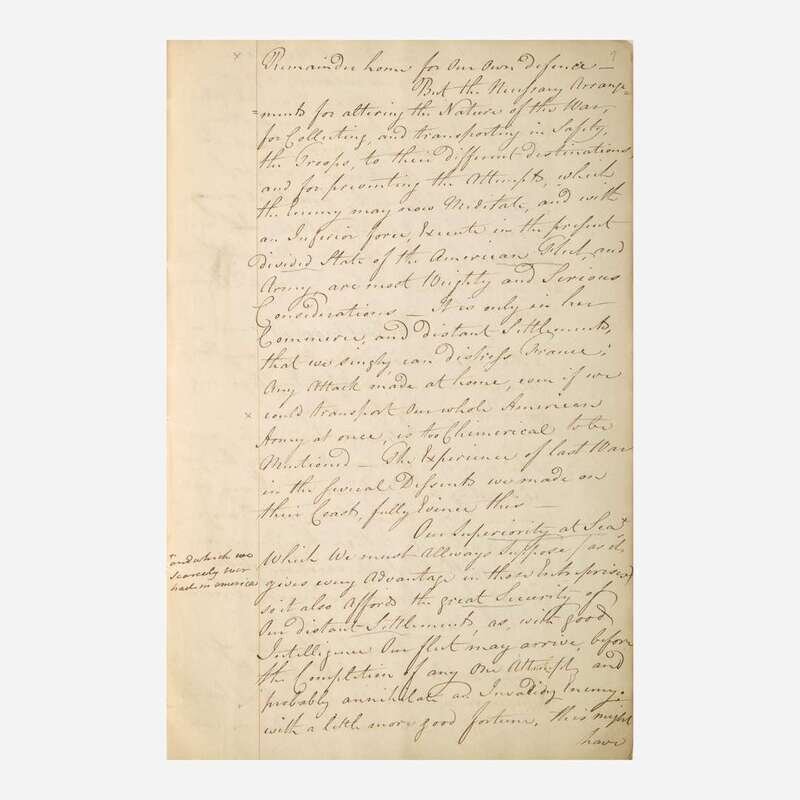 7
Remainder home for Our Own defence —
But the Necessary Arrange=
=ments for altering the Nature of the War,
for Collecting, and transporting in Safety,
the Troops, to their different destinations,
and for preventing the Attempts, which
the Enemy may now Meditate, and with
an Inferior force, Execute in the present
divided State of the American Fleet, and
Army, are most Weighty and Serious
Considerations — It is only in her
Commerce, and distant Settlements,
that we singly can distress France;
Any Attack made at home, even if we
could transport Our whole American
Army at once, is too Chimerical to be
Mentioned — The Experience of last War
in the several Dissents we made on
their Coast, fully Evince this —
Our Superiority at Sea,+
+ and which we
scarcely ever
had in america
Which We must Allways Suppose (as it,
gives every Advantage in those Entreprises)
so it also Affords the great Security of
Our distant Settlements, as, with good
Intelligence Our fleet may arrive, before
the Completion of any One Attempt, and
probably annihilate an Invading Enemy.
with a little more good fortune, this might
have